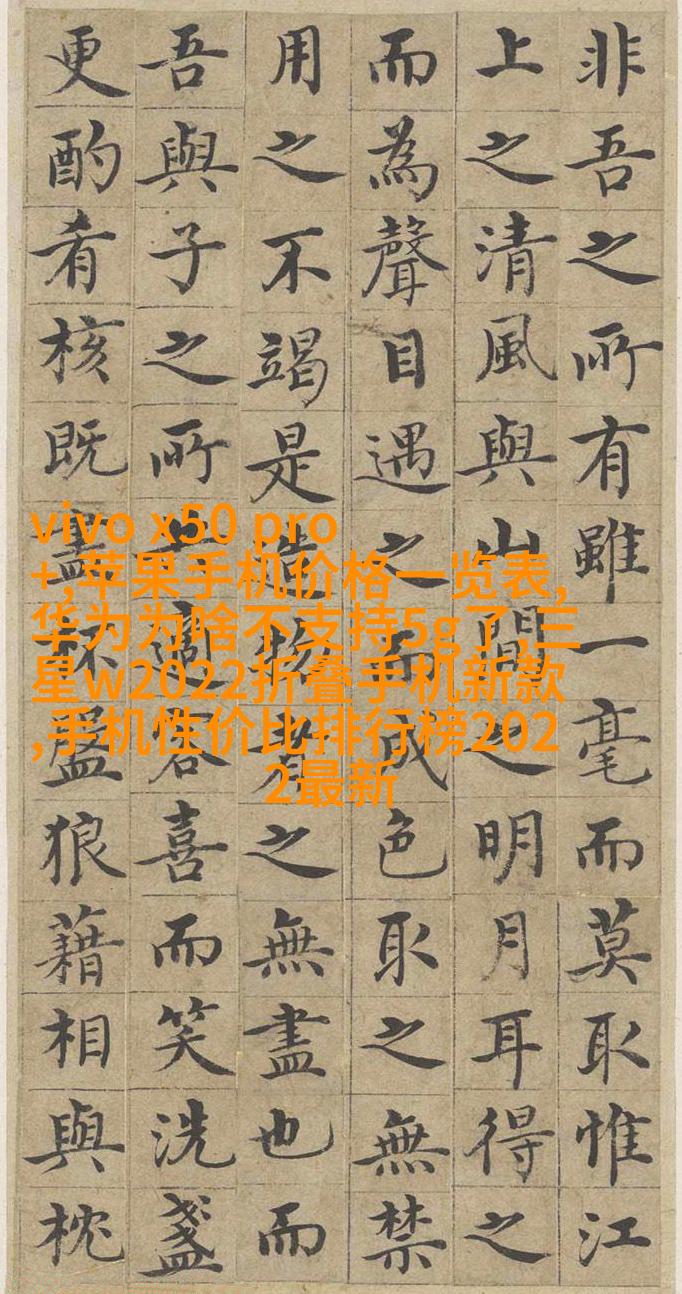 非吾之所有雖一毫而莫取惟江
上之清風與山間之明月耳得之
而為聲目遇之而成色取之無禁
用之不竭是造物者之無盡也而
吾與子之所適客喜而笑洗盞
更酌肴核既盡杯盤狼藉相與枕
vivo x50 pro
+,苹果手机价格一览表,
华为为啥不支持5g了,三
星w2022折叠手机新款
,手机性价比排行榜202
2最新